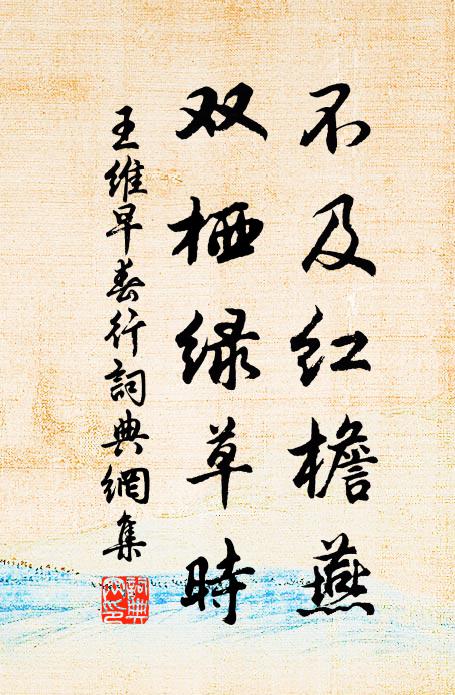 不及红檐燕
双栖绿草时
王维早春行詞典網集